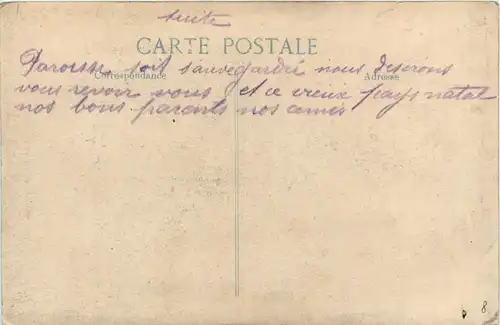 suite
CARTE POSTALE
Paroisse soit sauvegardée nous deserons
Correspondance Adresse
vous revoir vous et ce vieux pays natal
nos bons parents nos amis
8